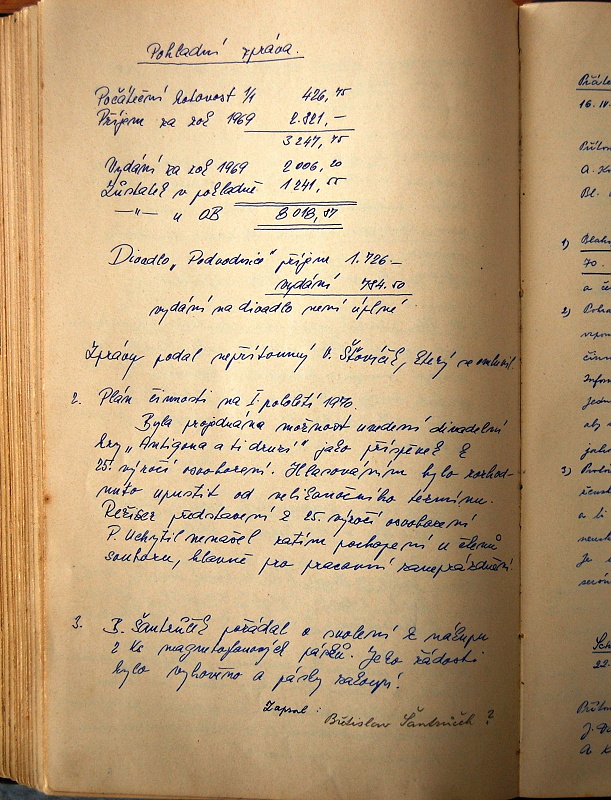 Pokladní zpráva.
Počáteční hotovost 1/1 426,75
Příjem za rok 1969 2.821,—
3247,75
Vydání za rok 1969 2006,20
Zůstatek v pokladně 1241,55
—"— u OB 8018,87
Divadlo „Podvodnice" příjem 1.726—
vydání 784.50
vydání na divadlo není úplné
Zprávy podal nepřítomný V. Šťovíček, který se omluvil.
2. Plán činnosti na I. pololetí 1970.
Byla projednána možnost uvedení divadelní
hry „Antigona a ti druzí" jako příspěvek k
25. výročí osvobození. Hlasováním bylo rozhod-
nuto upustit od nelišanského termínu.
Režisér představení k 25. výročí osvobození
P. Uchytil nenašel zatím pochopení u členů
souboru, hlavně pro pracovní zaneprázdnění.
3. B. Šantrůček požádal o svolení k nákupu
2 ks magnetofonových pásků. Jeho žádosti
bylo vyhověno a pásky zakoupí.
Zapsal:
Břetislav Šantrůček ?
16. IV.
1)
70.
a č
2)
3)
a ti
Je
22.